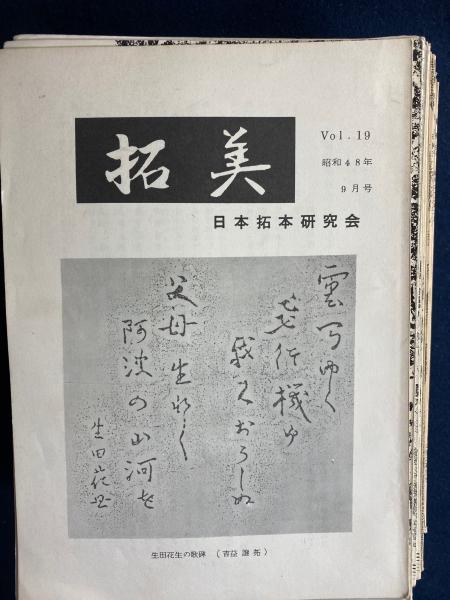 拓美
Vol. 19
昭和48年
9月号
日本拓本研究会
雲間ゆく
飛行機ゆ
我見おろしぬ
父母生れし
阿波の山河を
生田花世
生田花生の歌碑 (吉益 譲 拓)